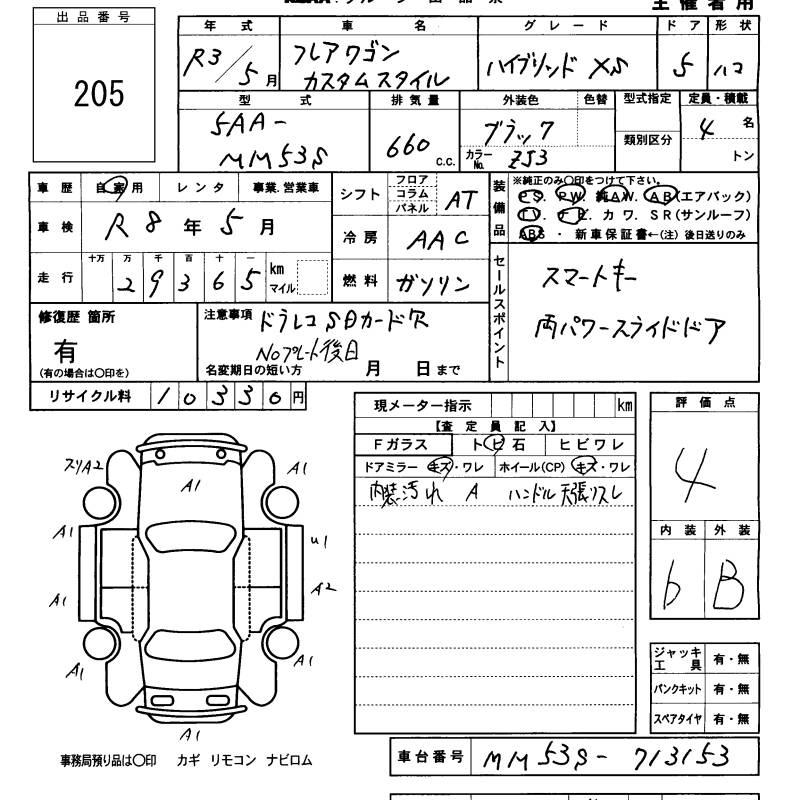 主催者用
出品番号
205
年式 車名 グレード ドア 形状
R3/5月 フレアワゴン カスタムスタイル ハイブリッド XS 5 ハコ
型式 排気量 外装色 色替 型式指定 定員・積載
5AA-MM53S 660 C.C. ブラック カラーNo. ZJ3 類別区分 4名 トン
車歴 自家用 レンタ 事業.営業車
車検 R8年5月
走行 十万 万 千 百 十 一
29365 km マイル
シフト フロア コラム パネル AT
冷房 AAC
燃料 ガソリン
装備品 ※純正のみ○印をつけて下さい。
PS. PW. 純AW. AB(エアバック)
TV. ナビ. カワ. SR(サンルーフ)
ABS・新車保証書←(注)後日送りのみ
セールスポイント
スマートキー
両パワースライドドア
修復歴 箇所
有
(有の場合は○印を)
注意事項 ドラレコSDカード欠
Noプレート後日
名変期日の短い方 月 日まで
リサイクル料 10330円
現メーター指示 km
【査定員記入】
Fガラス トビ石 ヒビワレ
ドアミラー キズ・ワレ ホイール(CP) キズ・ワレ
内装汚れ A ハンドル天張リスレ
評価点
4
内装 外装
b B
ジャッキ工具 有・無
パンクキット 有・無
スペアタイヤ 有・無
スリA2 A1 A1
A1 U1
A1 A2
A1 A1
A1
事務局預り品は○印 カギ リモコン ナビロム
車台番号 MM53S-713153